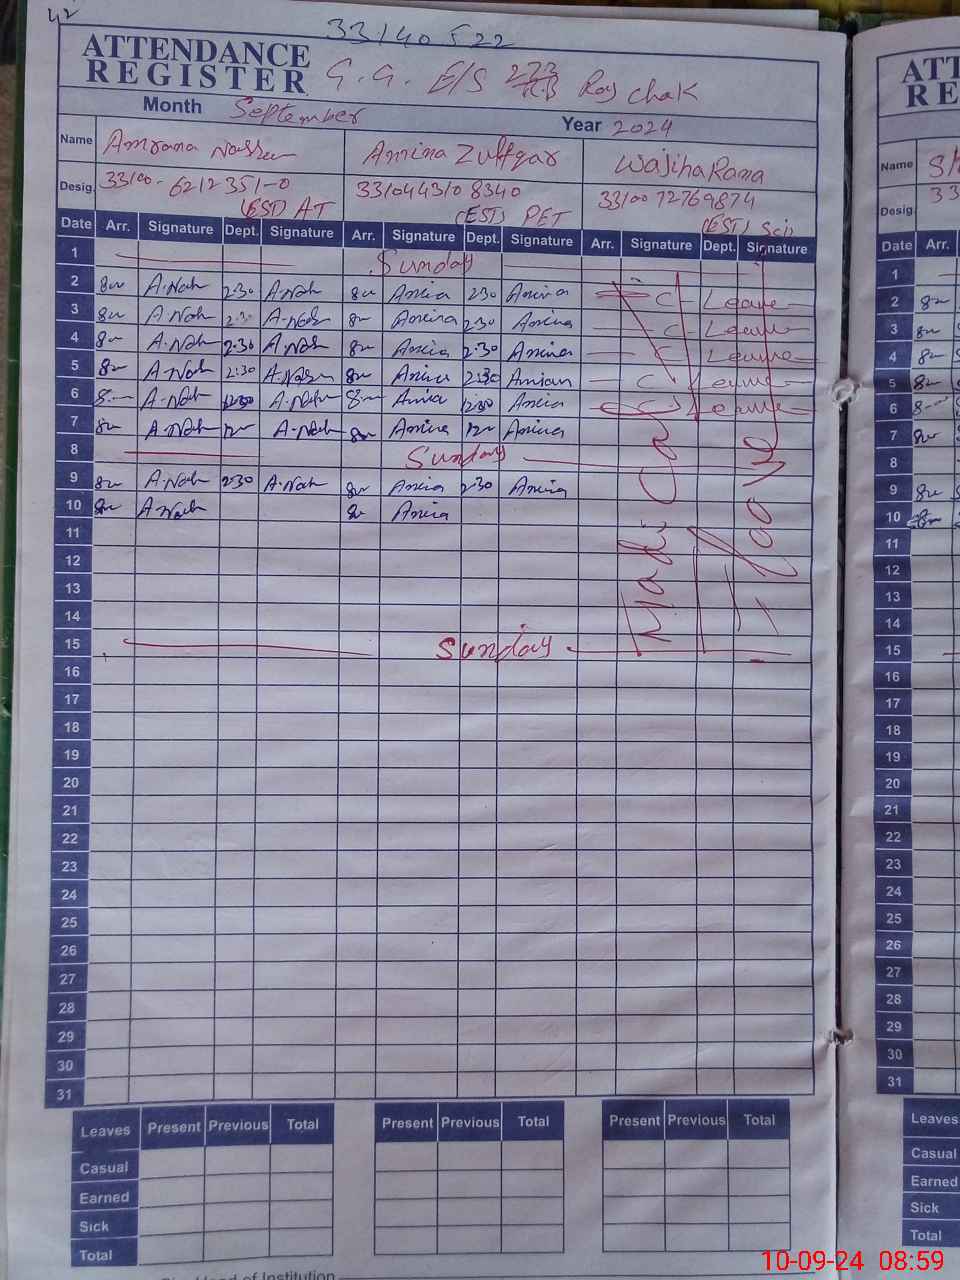 42
33140522
ATTENDANCE REGISTER
G.G. E/S 273 R.B Roy chak
Month September Year 2024
Name Amrana Nasreen Amina Zulfqar Wajiha Rana
Desig. 33100-6212351-0 (EST) AT 3310443108340 (EST) PET 3310072769874 (EST) Sci
Date Arr. Signature Dept. Signature Arr. Signature Dept. Signature Arr. Signature Dept. Signature
1 Sunday
2 A.Nah 2:30 A.Nah Amina 2:30 Amina C Leave
3 A.Nah 2:30 A.Nah Amina 2:30 Amina C Leave
4 A.Nah 2:30 A.Nah Amina 2:30 Amina C Leave
5 A.Nah 2:30 Amina 2:30 C Leave
6 A.Nah 12:30 A.Nah Amina 12:30 Amina C Leave
7 A.Nah A.Nah Amina Amina
8 Sunday
9 A.Nah 2:30 A.Nah Amina 2:30 Amina
10 A.Nah Amina
11
12
13
14
15 Sunday
16
17
18
19
20
21
22
23
24
25
26
27
28
29
30
31
Leaves Present Previous Total Present Previous Total Present Previous Total
Casual
Earned
Sick
Total
ATT
RE
Name
33
Desig.
Date Arr.
1
2
3
4
5
6
7
8
9
10
11
12
13
14
15
16
17
18
19
20
21
22
23
24
25
26
27
28
29
30
31
Leaves
Casual
Earned
Sick
Total
Head of Institution
10-09-24 08:59